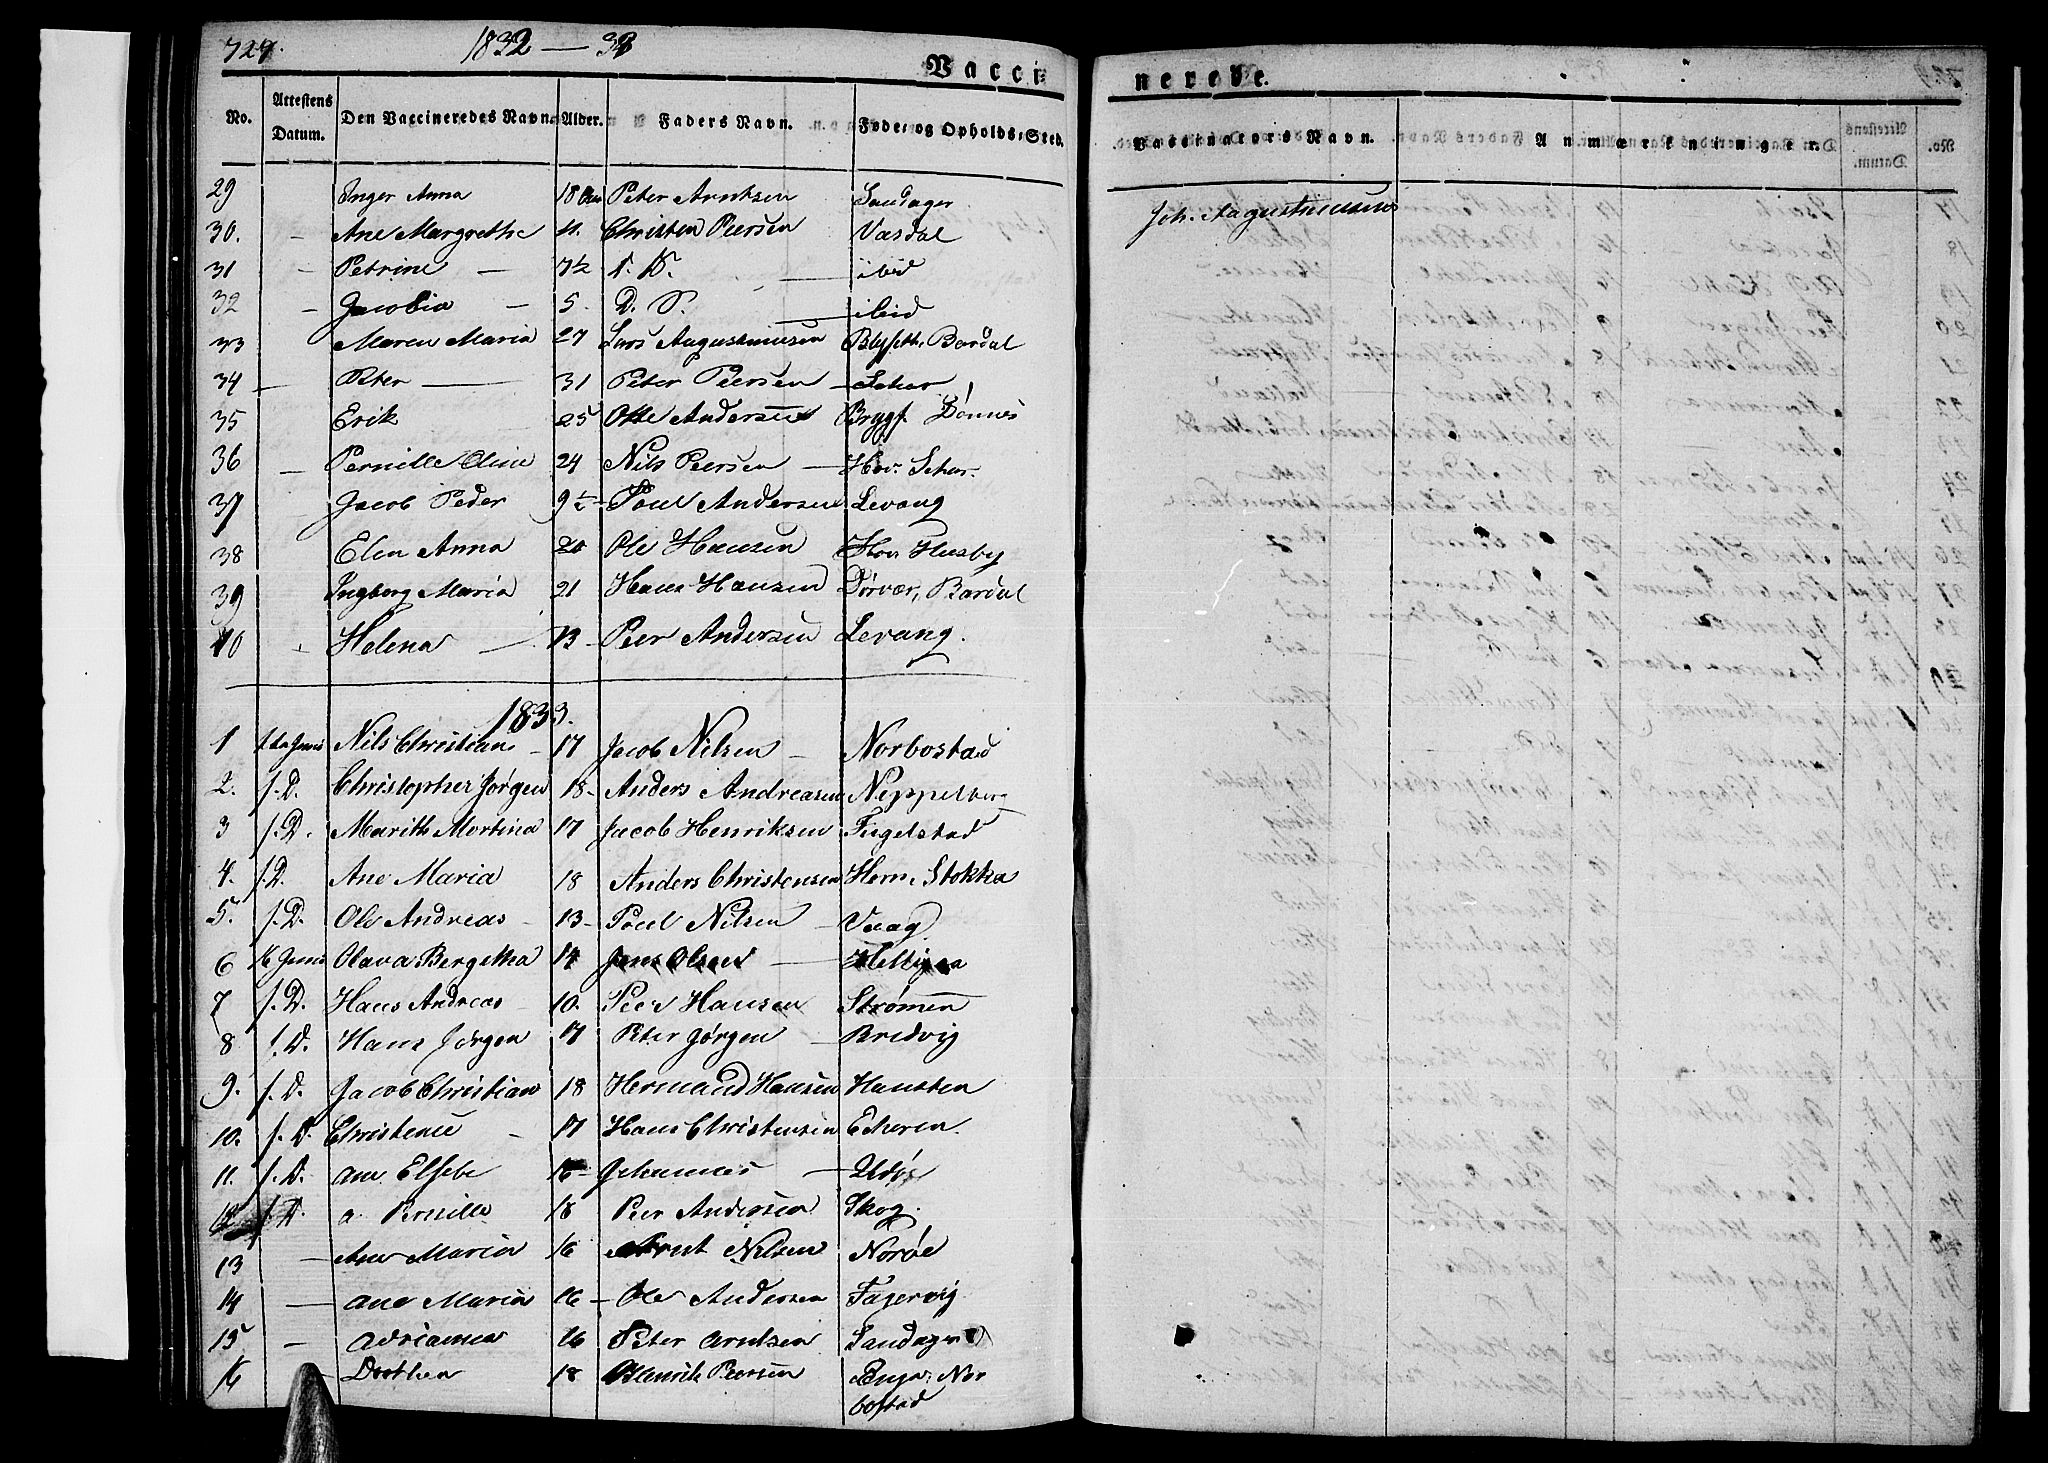 727. 1832 — 33
Vacci-
No. Attestens Datum. Den Vaccineredes Navn. Alder. Faders Navn. Føde- og Opholds-Sted.
29 Inger Anna 18 Peter Arntsen Sandager
30. - Ane Margrethe 11. Christen Peersen Vasdal
31 - Petrine — 7½ D. ibid
32 - Jacobia - 5. D. ibid
33 Maren Maria 27 Lars Augustinusen Bardal
34 — Peter — 31 Peter Peersen
35 Erik 25 Otte Andersen Brygf. Dønnes
36 - Pernille Oline 24 Nils Peersen — Hov.
37 Jacob Peder 9½ - Poul Andersen Levang
38 Elen Anna 20 Ole Hansen Hov Husby
39 Ingborg Maria 21 Hans Hansen Dørvær, Bardal
40 - Helena — 13 - Peer Andersen Levang.
1833.
1 Nils Christian - 17 Jacob Nilsen — Norbostad
2. s. D. Christopher Jørgen 18 - Anders Andreasen Neppelberg
3 s. D. Marith Mortina 17 Jacob Henriksen Fugelstad
4. s. D. Ane Maria 18 Anders Christensen Hern. Stokka
5. s. D. Ole Andreas - 13 - Poul Nilsen - Vaag
6 Olava Bergetha 14 Jens Olsen —
7 s. D. Hans Andreas 10. Peer Hansen Strømen
8 s. D. Hans Jørgen 17 Peter Jørgen - Bredvig
9. s. D. Jacob Christian 18 Hermand Hansen Hansten
10. s. D. Christense - 17 Hans Christensen
11. s. D. ane Elsebe 16 - Johannes —
12 s. D. a. Pernille 18 Peer Andersen Skog.
13 — Ane Maria 16 Arnt Nilsen Norøe
14 — ane Maria 16 — Ole Andersen Fagervig
15 - adrianna 16 Peter arntsen Sandager
16 - Dorthea 18 Henrik Peersen Norbostad
nerede.
Vaccinators Navn. Anmærkninger.
Joh. Augustinusen